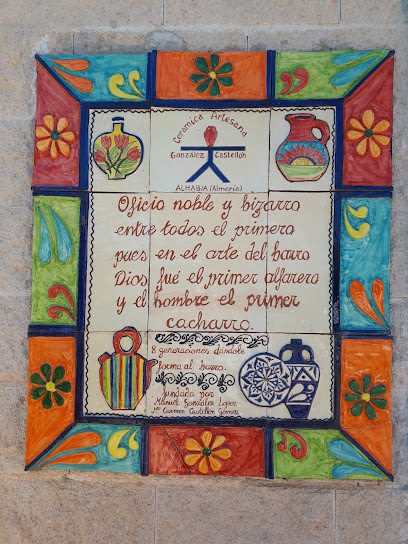 Ceramica Artesana
González Castellón
ALHABIA (Almería)
Oficio noble y bizarro
entre todos el primero
pues en el arte del barro
Dios fué el primer alfarero
y el hombre el primer
cacharro.
8 generaciones dandole
forma al barro.
fundada por
Manuel González López
Mª Carmen Castellón Gómez